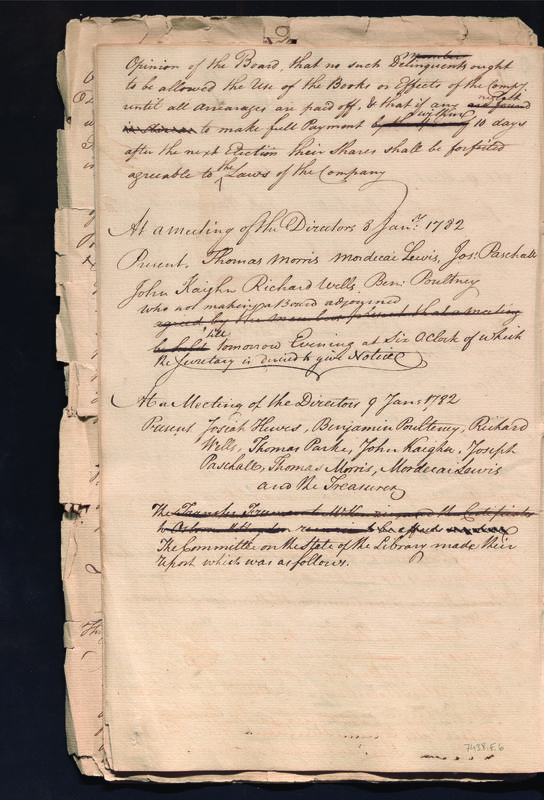 Opinion of the Board, that no such Delinquents ought
to be allowed the Use of the Books or Effects of the Compy
until all arrearages are paid off, & that if any neglect
to make full Payment within 10 days
after the next Election their Shares shall be forfeited
agreeable to the Laws of the Company
At a meeting of the Directors 8 Jany. 1782
Present. Thomas Morris Mordecai Lewis, Jos: Paschall
John Kaighn Richard Wells, Benj: Poultney
who not making a Board adjourned
agreed by the members present that a meeting
be held till tomorrow Evening at Six O Clock of which
the Secretary is desired to give Notice
At a Meeting of the Directors 9 Jany 1782
Present Josiah Hewes, Benjamin Poultney, Richard
Wells, Thomas Parke, John Kaighn, Joseph
Paschall, Thomas Morris, Mordecai Lewis
and the Treasurer
The Transfer
The Committee on the State of the Library made their
report which was as follows.
7438.F.6